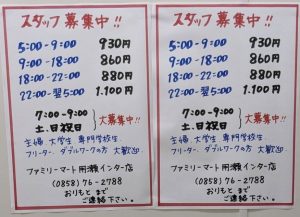 スタッフ募集中!!
5:00-9:00 930円
9:00-18:00 860円
18:00-22:00 880円
22:00-翌5:00 1.100円
7:00-9:00
土.日.祝日
大募集中!!
主婦 大学生 専門学校生
フリーター ダブルワークの方 大歓迎
ファミリーマート用瀬インター店
(0858)76-2788
おりもと まで
ご連絡下さい。
スタッフ募集中!!
5:00-9:00 930円
9:00-18:00 860円
18:00-22:00 880円
22:00-翌5:00 1.100円
7:00-9:00
土.日.祝日
大募集中!!
主婦 大学生 専門学校生
フリーター ダブルワークの方 大歓迎
ファミリーマート用瀬インター店
(0858)76-2788
おりもと まで
ご連絡下さい。